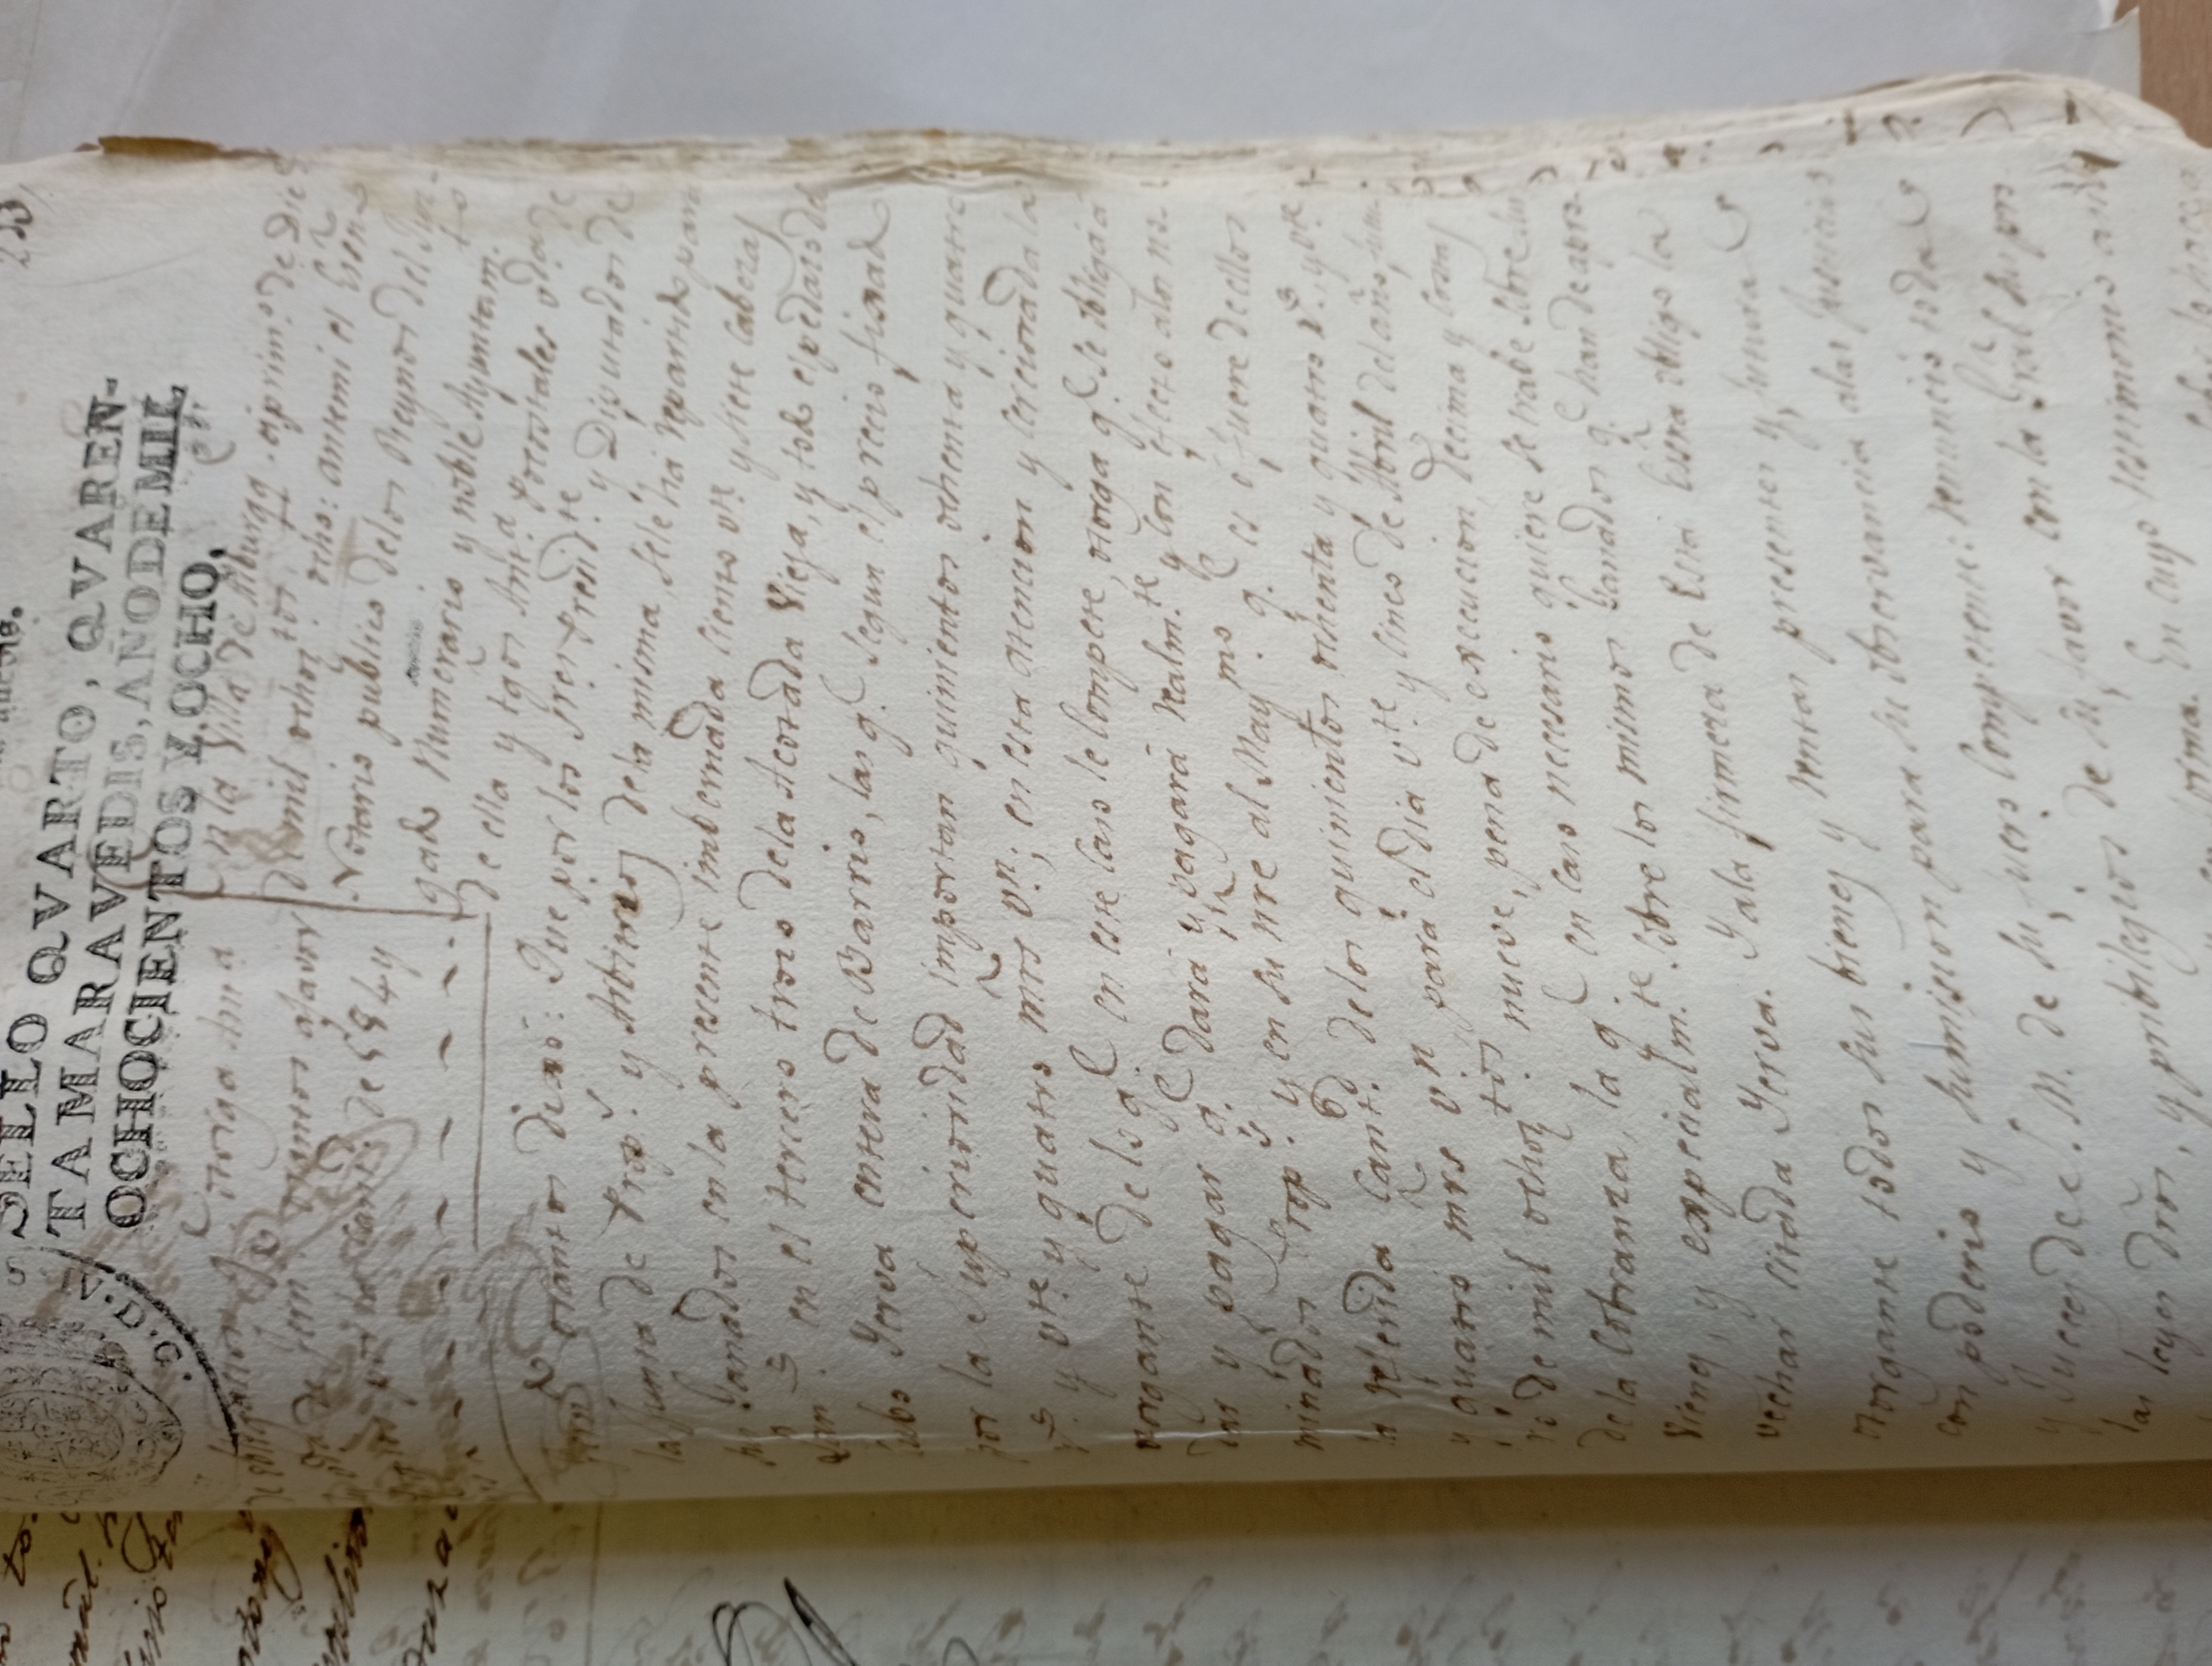 233
SELLO QVARTO, QVAREN-
TAMARAVEDIS, AÑO DE MIL
OCHOCIENTOS Y OCHO.
de obligacion q.e otorga Ant.a
vda de Fern.do orantos a favor
Propios por la Cant.d de 584 y
En la Villa de Alburqq. a prim.o de Dic.e
de mil ochoz.tos ocho: antemi el Esñ.no
Notario publico delos Reynos del Juz-
gado Numerario y noble Ayuntam.to
de ella y tg̃os Ant.a Pocostales vda de
Fern.do orantos dixó: Que por los sres Presid.te y Diputados de
la Junta de Prop.s y Arbitrios dela misma, sele há repartido para
sus Ganados en la presente imbernada ciento vte. y siete Cabezas
Lan.s en el tercero trozo dela Acotada Vieja, y todo el pedazo del
Cubo Yerva entera de Barrio, las q.e segun el precio fixado
por la Superioridad importan quinientos ochenta y quatro
r.s y vte. y quatro mr̃s vn.; en esta atencion y cerciorada la
otorgante de lo q.e en este caso le compete, otorga q.e se obliga á
dar y pagar q.e dará y pagará realm.te y con efecto alos no-
minados Prop.s y en su nr̃e al Maym.mo q.e es ó fuere de ellos
la referida Cant.d delos quinientos ochenta y quatro r.s, y vte
y quatro mr̃s vn para el dia v.te y cinco de Abril del año futu-
ro de mil ochoz.tos nueve, pena de execucion, decima y costas
dela Cobranza, la q.e en caso necesario quiere se trabe sobre sus
Vienes, y expecialm.te sobre los mismos Ganados q.e han de apro-
vechar citada Yerva. Y ala firmeza de Esta Essr̃a obligo la
otorgante todos sus bienes y rentas presentes y futuras
con poderio y sumision para su observancia alas Justicias
y Jueces de S. M. de su fuero Competente: renunció todas
las leyes dr̃os, y pribilegios de su favor con la Gr̃al su pro
en forma. En cuyo testimonio asi lo